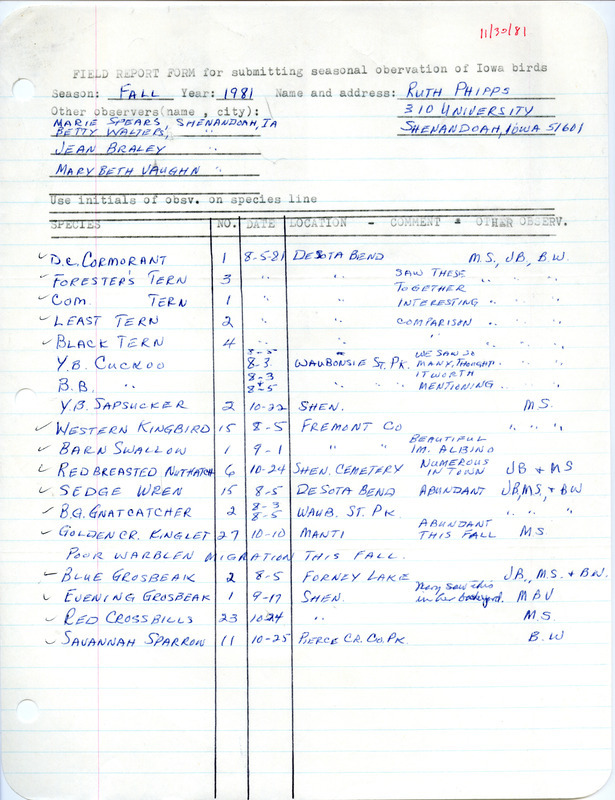 11/30/81
FIELD REPORT FORM for submitting seasonal obervation of Iowa birds
Season: FALL Year: 1981 Name and address: RUTH PHIPPS
Other observers(name , city): 310 UNIVERSITY
MARIE SPEARS, SHENANDOAH, IA SHENANDOAH, IOWA 51601
BETTY WALTERS, "
JEAN BRALEY "
MARY BETH VAUGHN "
Use initials of obsv. on species line
SPECIES NO. DATE LOCATION - COMMENT & OTHER OBSERV.
D.C. CORMORANT 1 8-5-81 DESOTA BEND M.S., JB, B.W.
FORESTER'S TERN 3 " " " SAW THESE TOGETHER " " "
COM. TERN 1 " " " INTERESTING " " "
LEAST TERN 2 " " " COMPARISON " " "
BLACK TERN 4 " " " " " " "
Y.B. CUCKOO 8-5 8-3 WAUBONSIE ST. PK. WE SAW SO MANY, THOUGHT " " "
B.B. " 8-3 & 8-5 " " " IT WORTH MENTIONING " " "
Y.B. SAPSUCKER 2 10-22 SHEN. M.S.
WESTERN KINGBIRD 15 8-5 FREMONT CO " " "
BARN SWALLOW 1 9-1 " " BEAUTIFUL IM. ALBINO
RED BREASTED NUTHATCH 6 10-24 SHEN. CEMETERY NUMEROUS IN TOWN JB & MS
SEDGE WREN 15 8-5 DESOTA BEND ABUNDANT JB, MS, & BW
B.G. GNATCATCHER 2 8-3 8-5 WAUB. ST. PK. " " "
GOLDEN CR. KINGLET 27 10-10 MANTI ABUNDANT THIS FALL M.S.
POOR WARBLEN MIGRATION THIS FALL.
BLUE GROSBEAK 2 8-5 FORNEY LAKE JB., M.S. & B.W.
EVENING GROSBEAK 1 9-17 SHEN. Mary saw this in her backyard. MBV
RED CROSSBILLS 23 10-24 " M.S.
SAVANNAH SPARROW 11 10-25 PIERCE CR. CO. PK. B.W